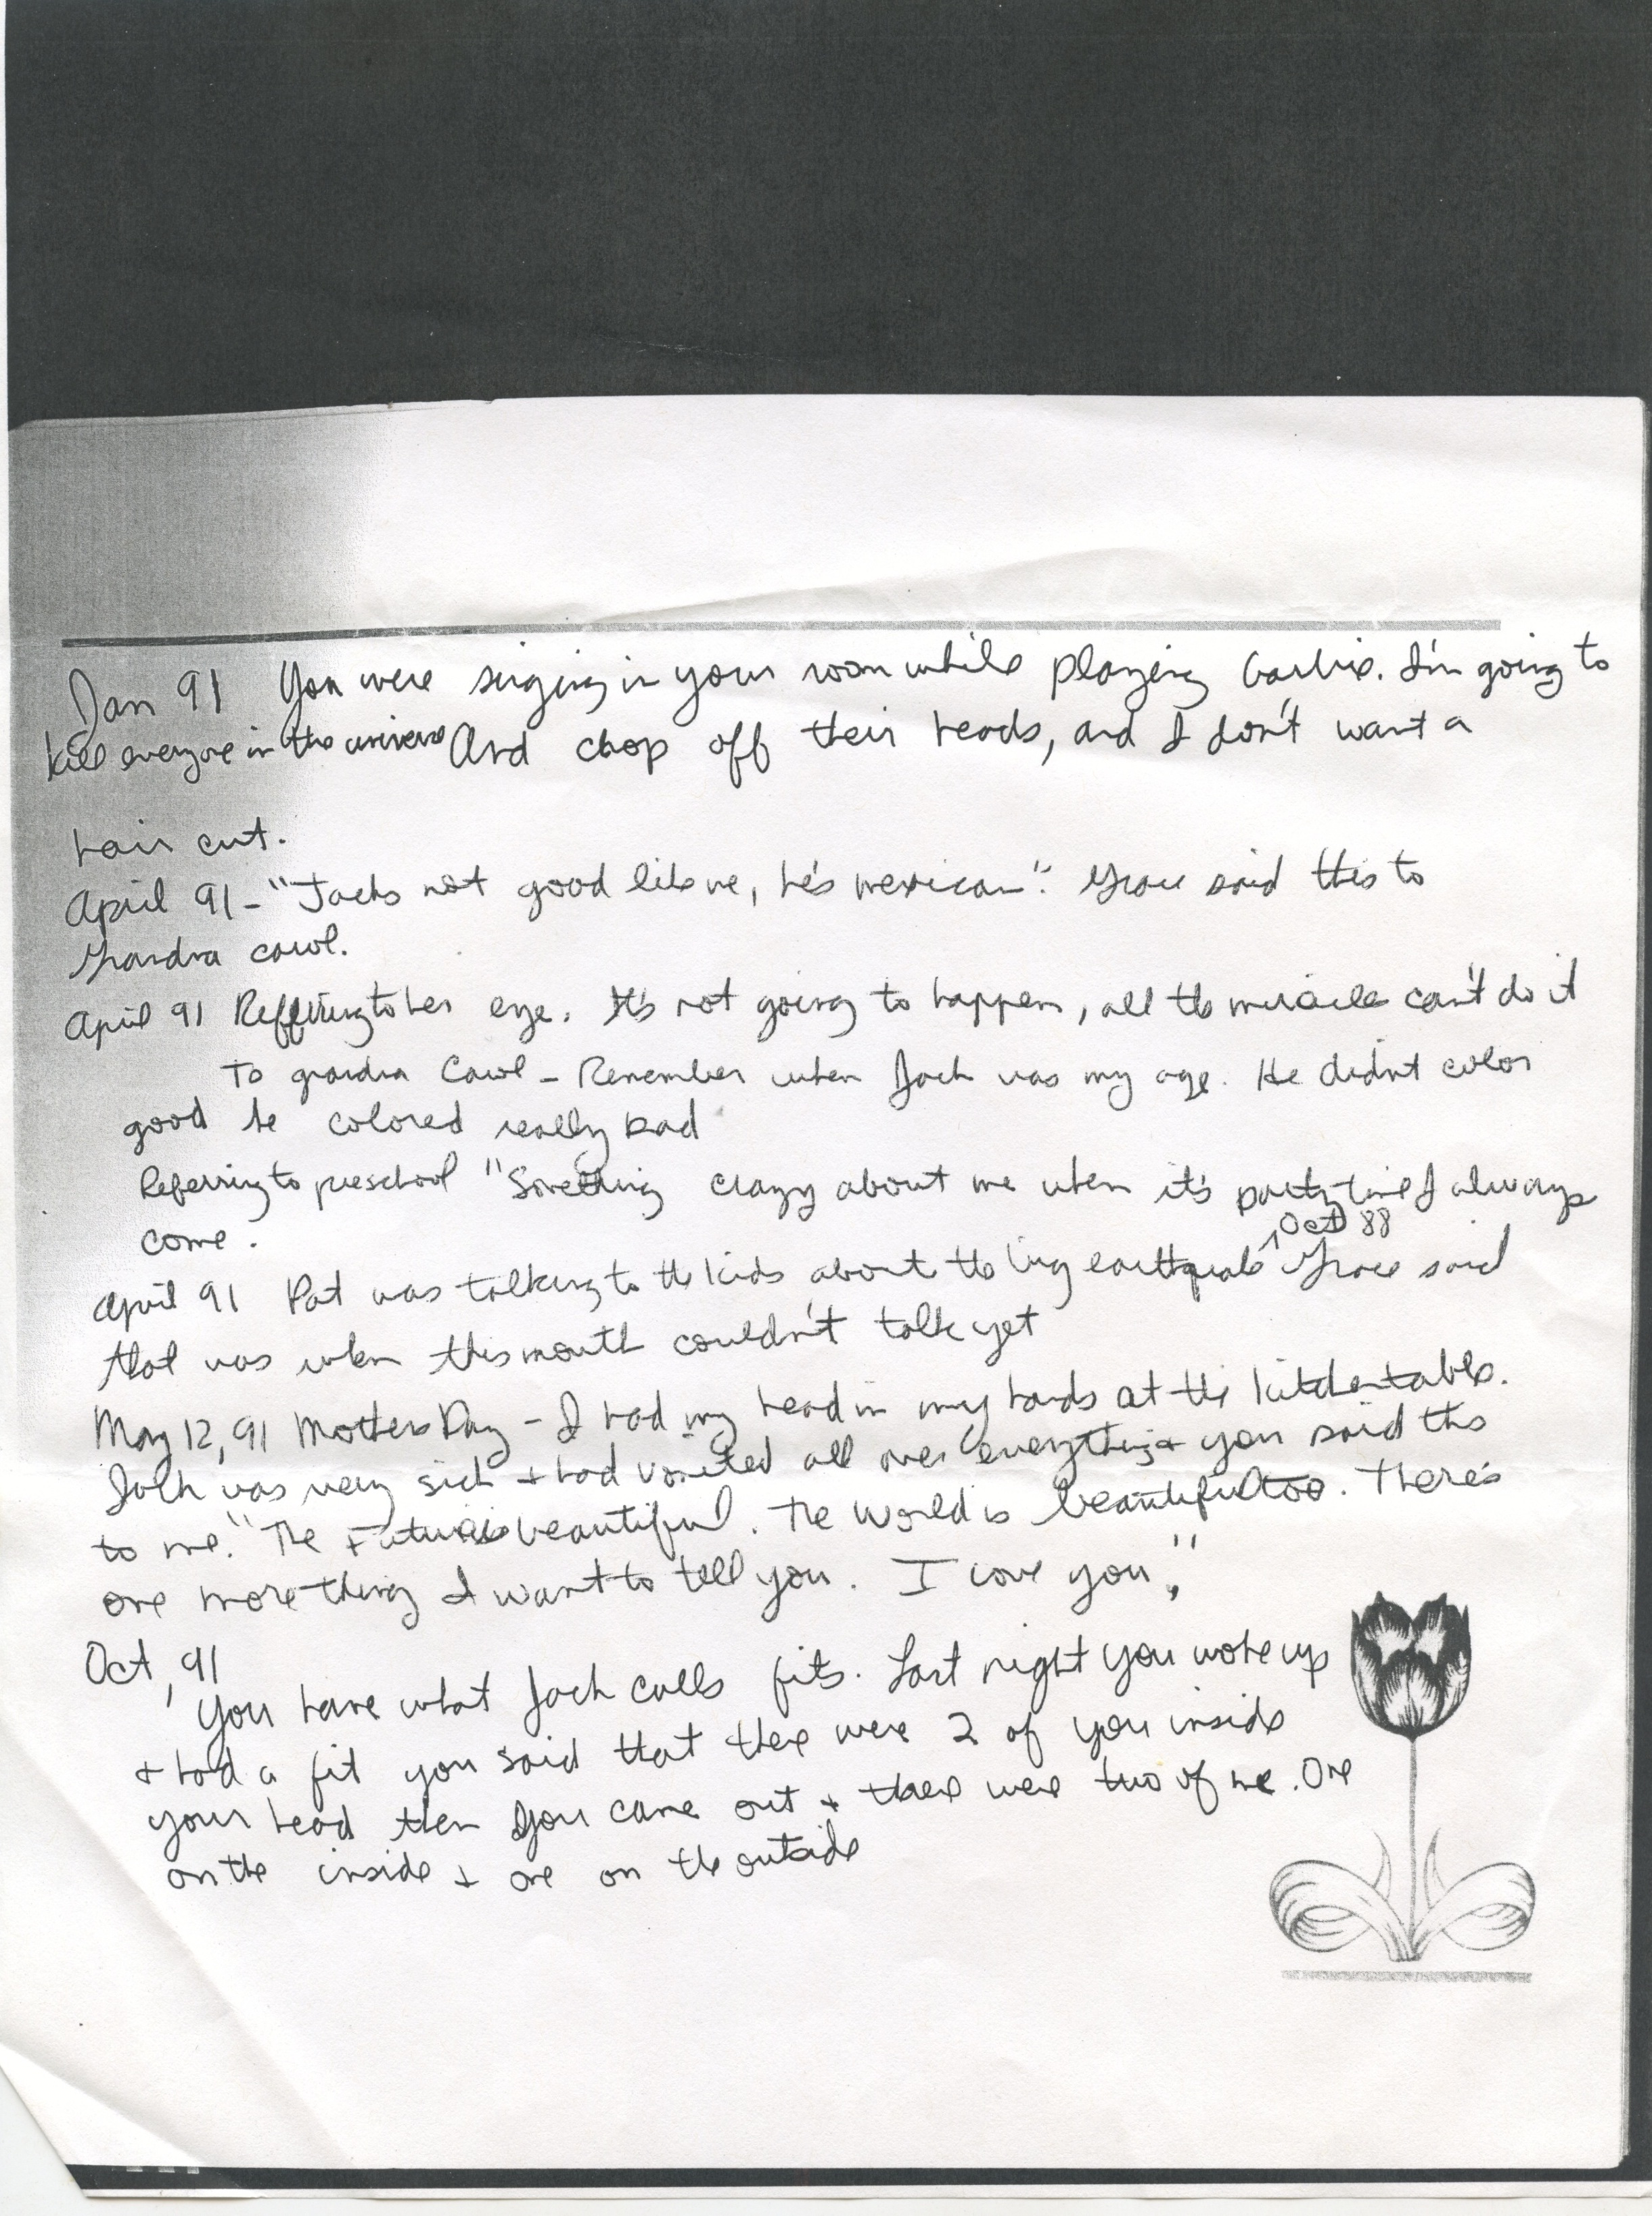 Jan 91 You were singing in your room while playing barbie. I'm going to
kill everyone in the universe And chop off their heads, and I don't want a
hair cut.
April 91 - "Jacks not good like me, he's mexican". Grace said this to
Grandma Carol.
April 91 Reffering to her eye. It's not going to happen, all the miracle can't do it
To grandma Carol - Remember when Jack was my age. He didn't color
good he colored really bad
Referring to preschool "Something crazy about me when it's party time I always
come.
Oct 88
April 91 Pat was talking to the kids about the big earthquake Grace said
that was when this mouth couldn't talk yet
May 12, 91 Mothers Day - I had my head in my hands at the kitchen table.
Jack was very sick + had vomited all over everything + you said this
to me. "The Future is beautiful. The World is beautiful too. There's
one more thing I want to tell you. I love you."
Oct, 91
You have what Jack calls fits. Last night you woke up
+ had a fit you said that there were 2 of you inside
your head then you came out + there were two of me. One
on the inside + one on the outside